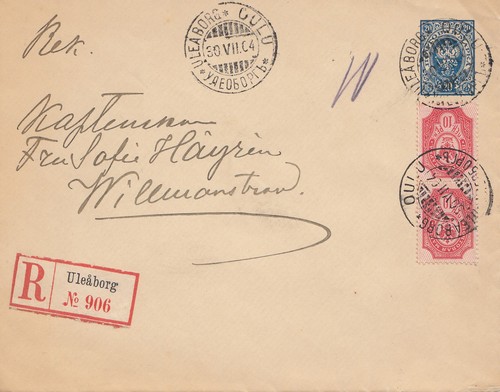 Rek.
ULEÅBORG * OULU
30.VII.04
* УЛЕОБОРГЪ *
Kaptenskan
Fru Sofie Häyrén
Willmanstrand.
R
Uleåborg
№ 906
10
ULEÅBORG
OULU
ULEÅBORG